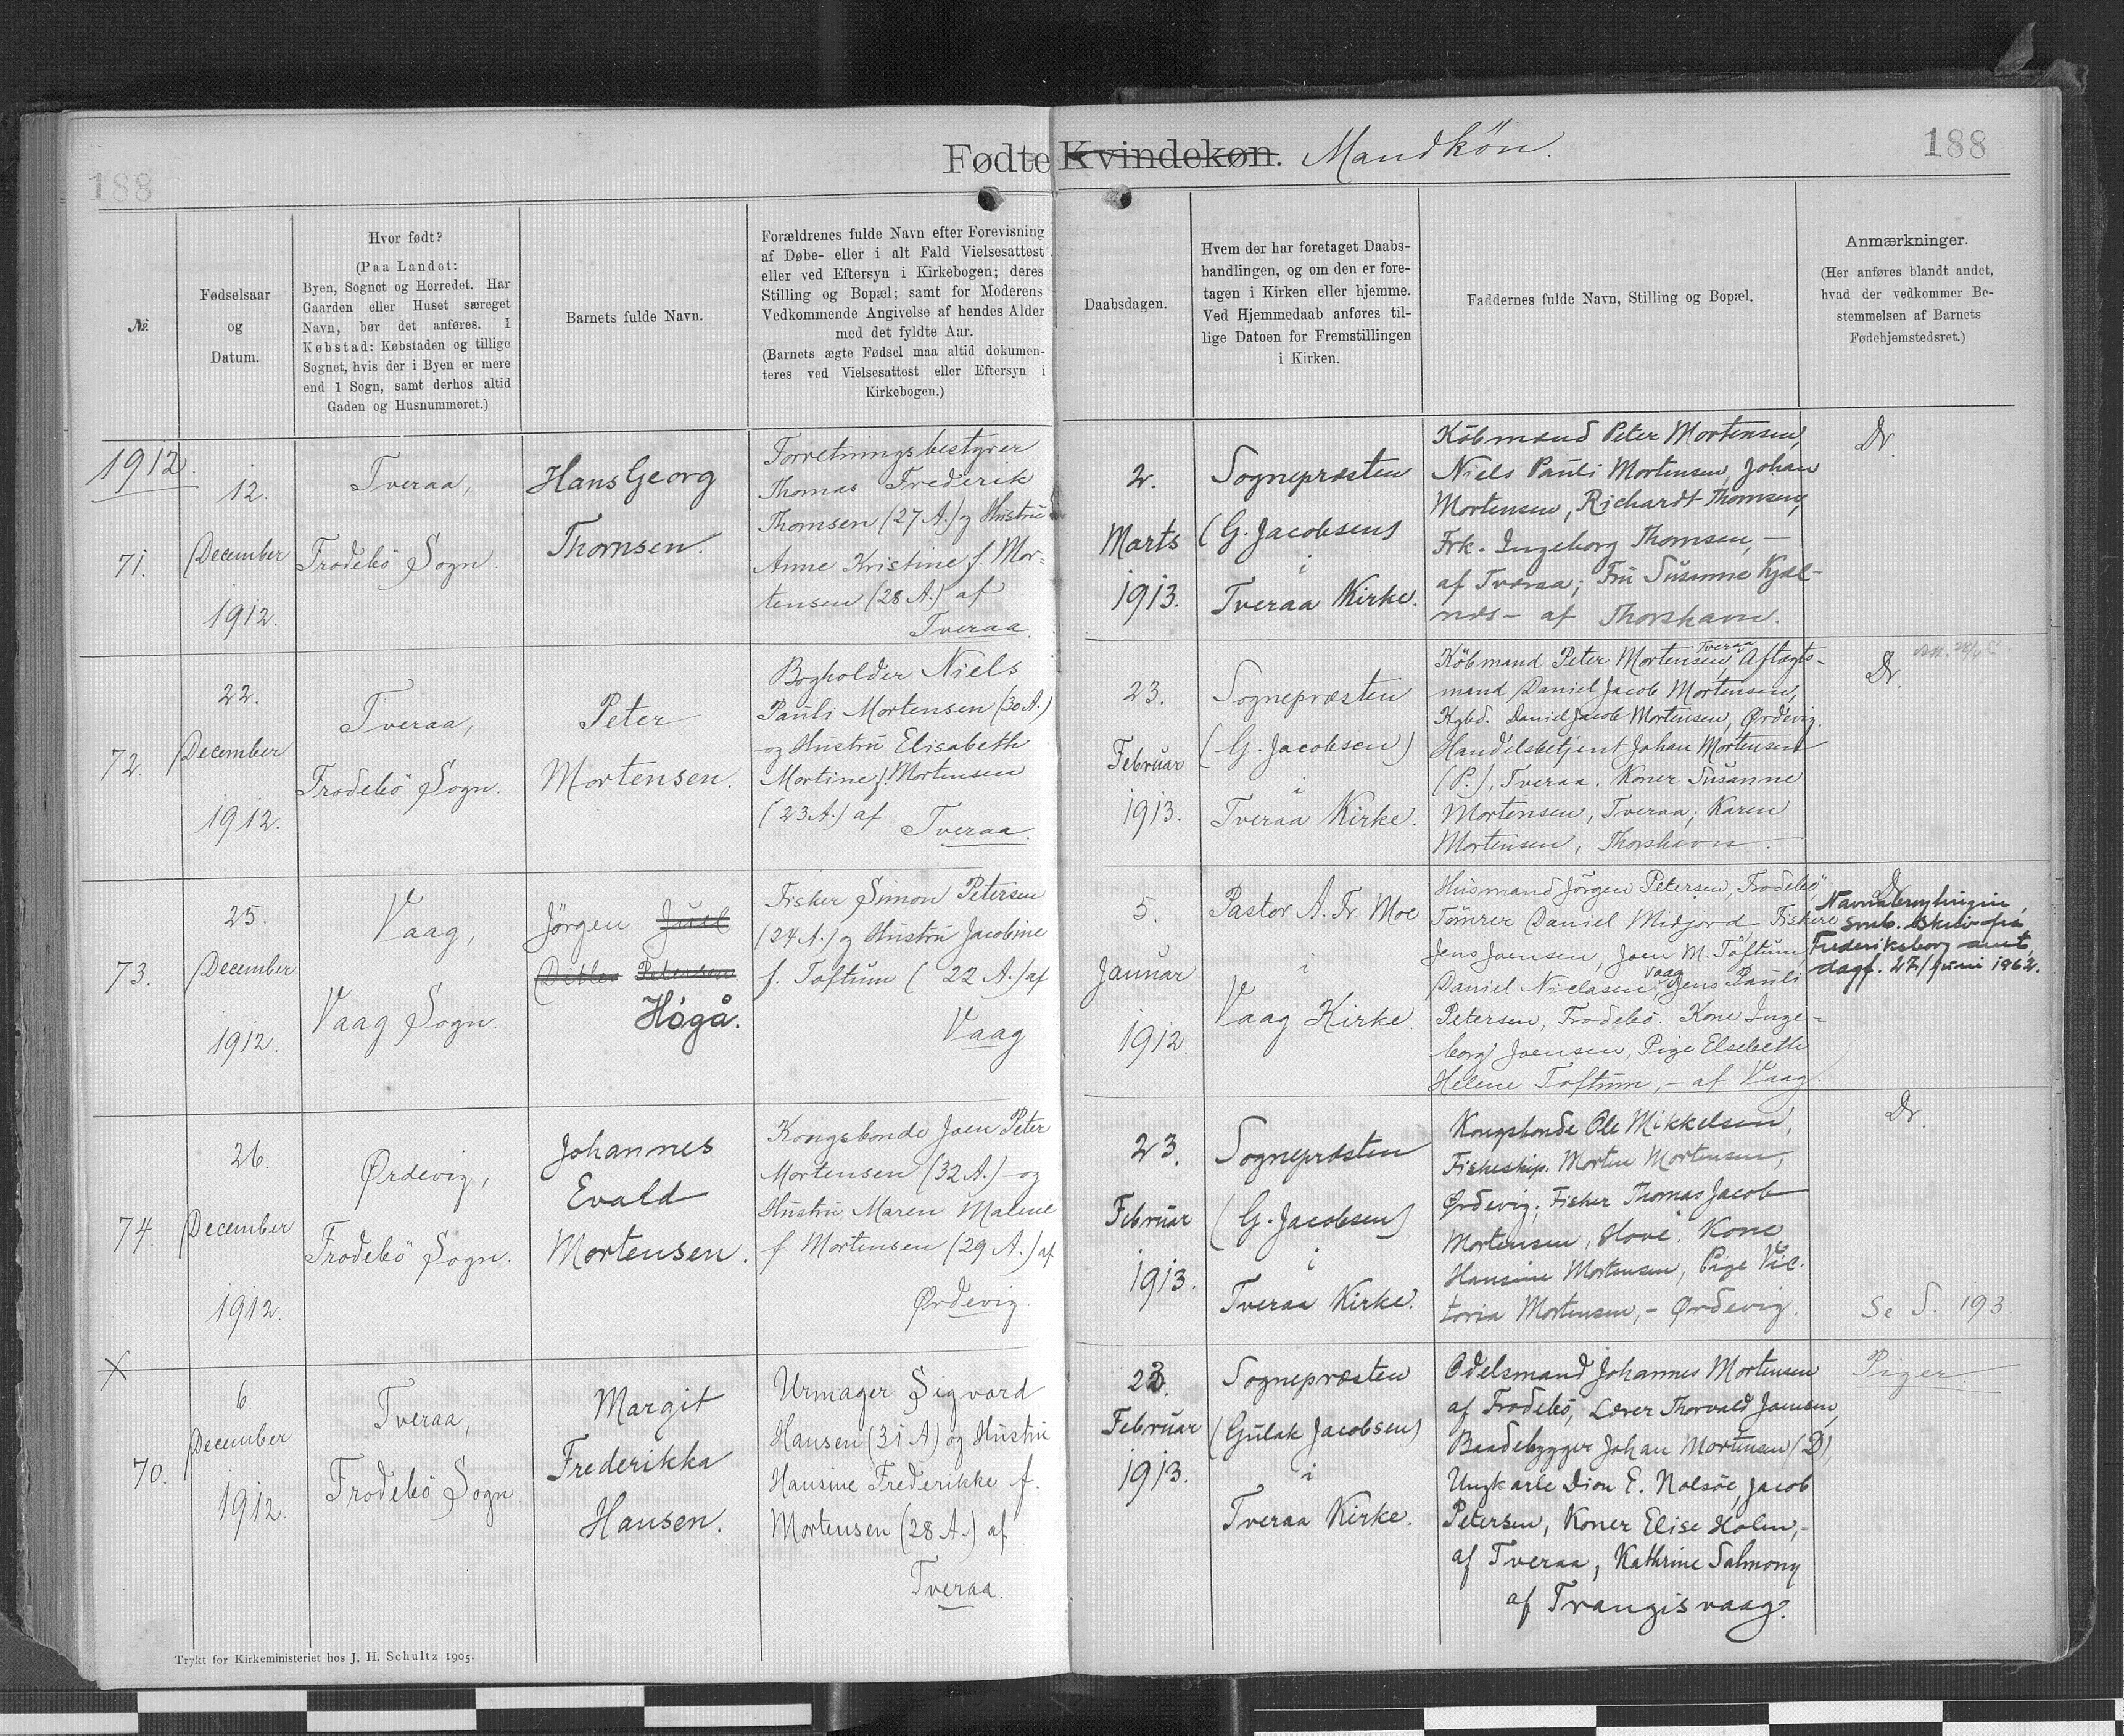 188
Fødte Kvindekøn. Mandkön.
188
№
Fødselsaar
og
Datum.
Hvor født?
(Paa Landet:
Byen, Sognet og Herredet. Har
Gaarden eller Huset særeget
Navn, bør det anføres. I
Købstad: Købstaden og tillige
Sognet, hvis der i Byen er mere
end 1 Sogn, samt derhos altid
Gaden og Husnummeret.)
Barnets fulde Navn.
Forældrenes fulde Navn efter Forevisning
af Døbe- eller i alt Fald Vielsesattest
eller ved Eftersyn i Kirkebogen; deres
Stilling og Bopæl; samt for Moderens
Vedkommende Angivelse af hendes Alder
med det fyldte Aar.
(Barnets ægte Fødsel maa altid dokumen-
teres ved Vielsesattest eller Eftersyn i
Kirkebogen.)
Daabsdagen.
Hvem der har foretaget Daabs-
handlingen, og om den er fore-
tagen i Kirken eller hjemme.
Ved Hjemmedaab anføres til-
lige Datoen for Fremstillingen
i Kirken.
Faddernes fulde Navn, Stilling og Bopæl.
Anmærkninger.
(Her anføres blandt andet,
hvad der vedkommer Be-
stemmelsen af Barnets
Fødehjemstedsret.)
1912.
71.
12.
December
1912.
Tveraa,
Frodebö Sogn.
Hans Georg
Thomsen.
Forretningsbestyrer
Thomas Frederik
Thomsen (27 A.) og Hustru
Anne Kristine f. Mor-
tensen (28 A.) af
Tveraa.
2.
Marts
1913.
Sognepræsten
(G. Jacobsen)
i
Tveraa Kirke.
Köbmand Peter Mortensen,
Niels Pauli Mortensen, Johan
Mortensen, Richardt Thomsen,
Frk. Ingeborg Thomsen, -
af Tveraa; Fru Susanne Kjæl-
næs - af Thorshavn.
Dr.
72.
22.
December
1912.
Tveraa,
Frodebö Sogn.
Peter
Mortensen.
Bogholder Niels
Pauli Mortensen (30 A.)
og Hustru Elisabeth
Mortine f. Mortensen
(23 A.) af
Tveraa.
23.
Februar
1913.
Sognepræsten
(G. Jacobsen)
i
Tveraa Kirke.
Köbmand Peter Mortensen, Tveraa, Aftægts-
mand Daniel Jacob Mortensen,
Kgbd. Daniel Jacob Mortensen, Ørdevig.
Handelsbetjent Johan Mortensen
(P.), Tveraa. Koner Susanne
Mortensen, Tveraa; Karen
Mortensen, Thorshavn.
Dr.
73.
25.
December
1912.
Vaag,
Vaag Sogn.
Jörgen Juel
Ditlev Petersen
Høgå.
Fisker Simon Petersen
(24 A.) og Hustru Jacobine
f. Toftum (22 A.) af
Vaag
5.
Januar
1912.
Pastor A. Fr. Moe
i
Vaag Kirke.
Husmand Jörgen Petersen, Frodebö,
Tömrer Daniel Midjord, Fiskere
Jens Joensen, Joen M. Toftum,
Daniel Niclasen, Vaag, Jens Pauli
Petersen, Frodebö. Kone Inge-
borg Joensen, Pige Elsebeth
Helene Toftum, - af Vaag.
Dr.
Navnabroytingin,
smb. skriv frá
Frederiksborg amt,
dagf. 27/ juni 1962.
74.
26.
December
1912.
Ørdevig,
Frodebö Sogn.
Johannes
Evald
Mortensen.
Kongsbonde Joen Peter
Mortensen (32 A.) og
Hustru Maren Malene
f. Mortensen (29 A.) af
Ørdevig.
23.
Februar
1913.
Sognepræsten
(G. Jacobsen)
i
Tveraa Kirke.
Kongsbonde Ole Mikkelsen,
Fiskeskip. Morten Mortensen,
Ørdevig; Fisker Thomas Jacob
Mortensen, Hove. Kone
Hansine Mortensen, Pige Vic-
toria Mortensen, - Ørdevig.
Dr.
Se S. 193.
X
70.
6.
December
1912.
Tveraa,
Frodebö Sogn
Margit
Frederikka
Hansen.
Urmager Sigvard
Hansen (31 A) og Hustru
Hansine Frederikke f.
Mortensen (28 A.) af
Tveraa.
23.
Februar
1913.
Sognepræsten
(Gulak Jacobsen)
i
Tveraa Kirke.
Odelsmand Johannes Mortensen
af Frodebö, Lærer Thorvald Jensen,
Baadebygger Johan Mortensen (D),
Ungkarle Dion E. Nolsöe, Jacob
Petersen, Koner Elise Holm, -
af Tveraa, Kathrine Salmony
af Trangisvaag.
Piger.
Trykt for Kirkeministeriet hos J. H. Schultz 1905.